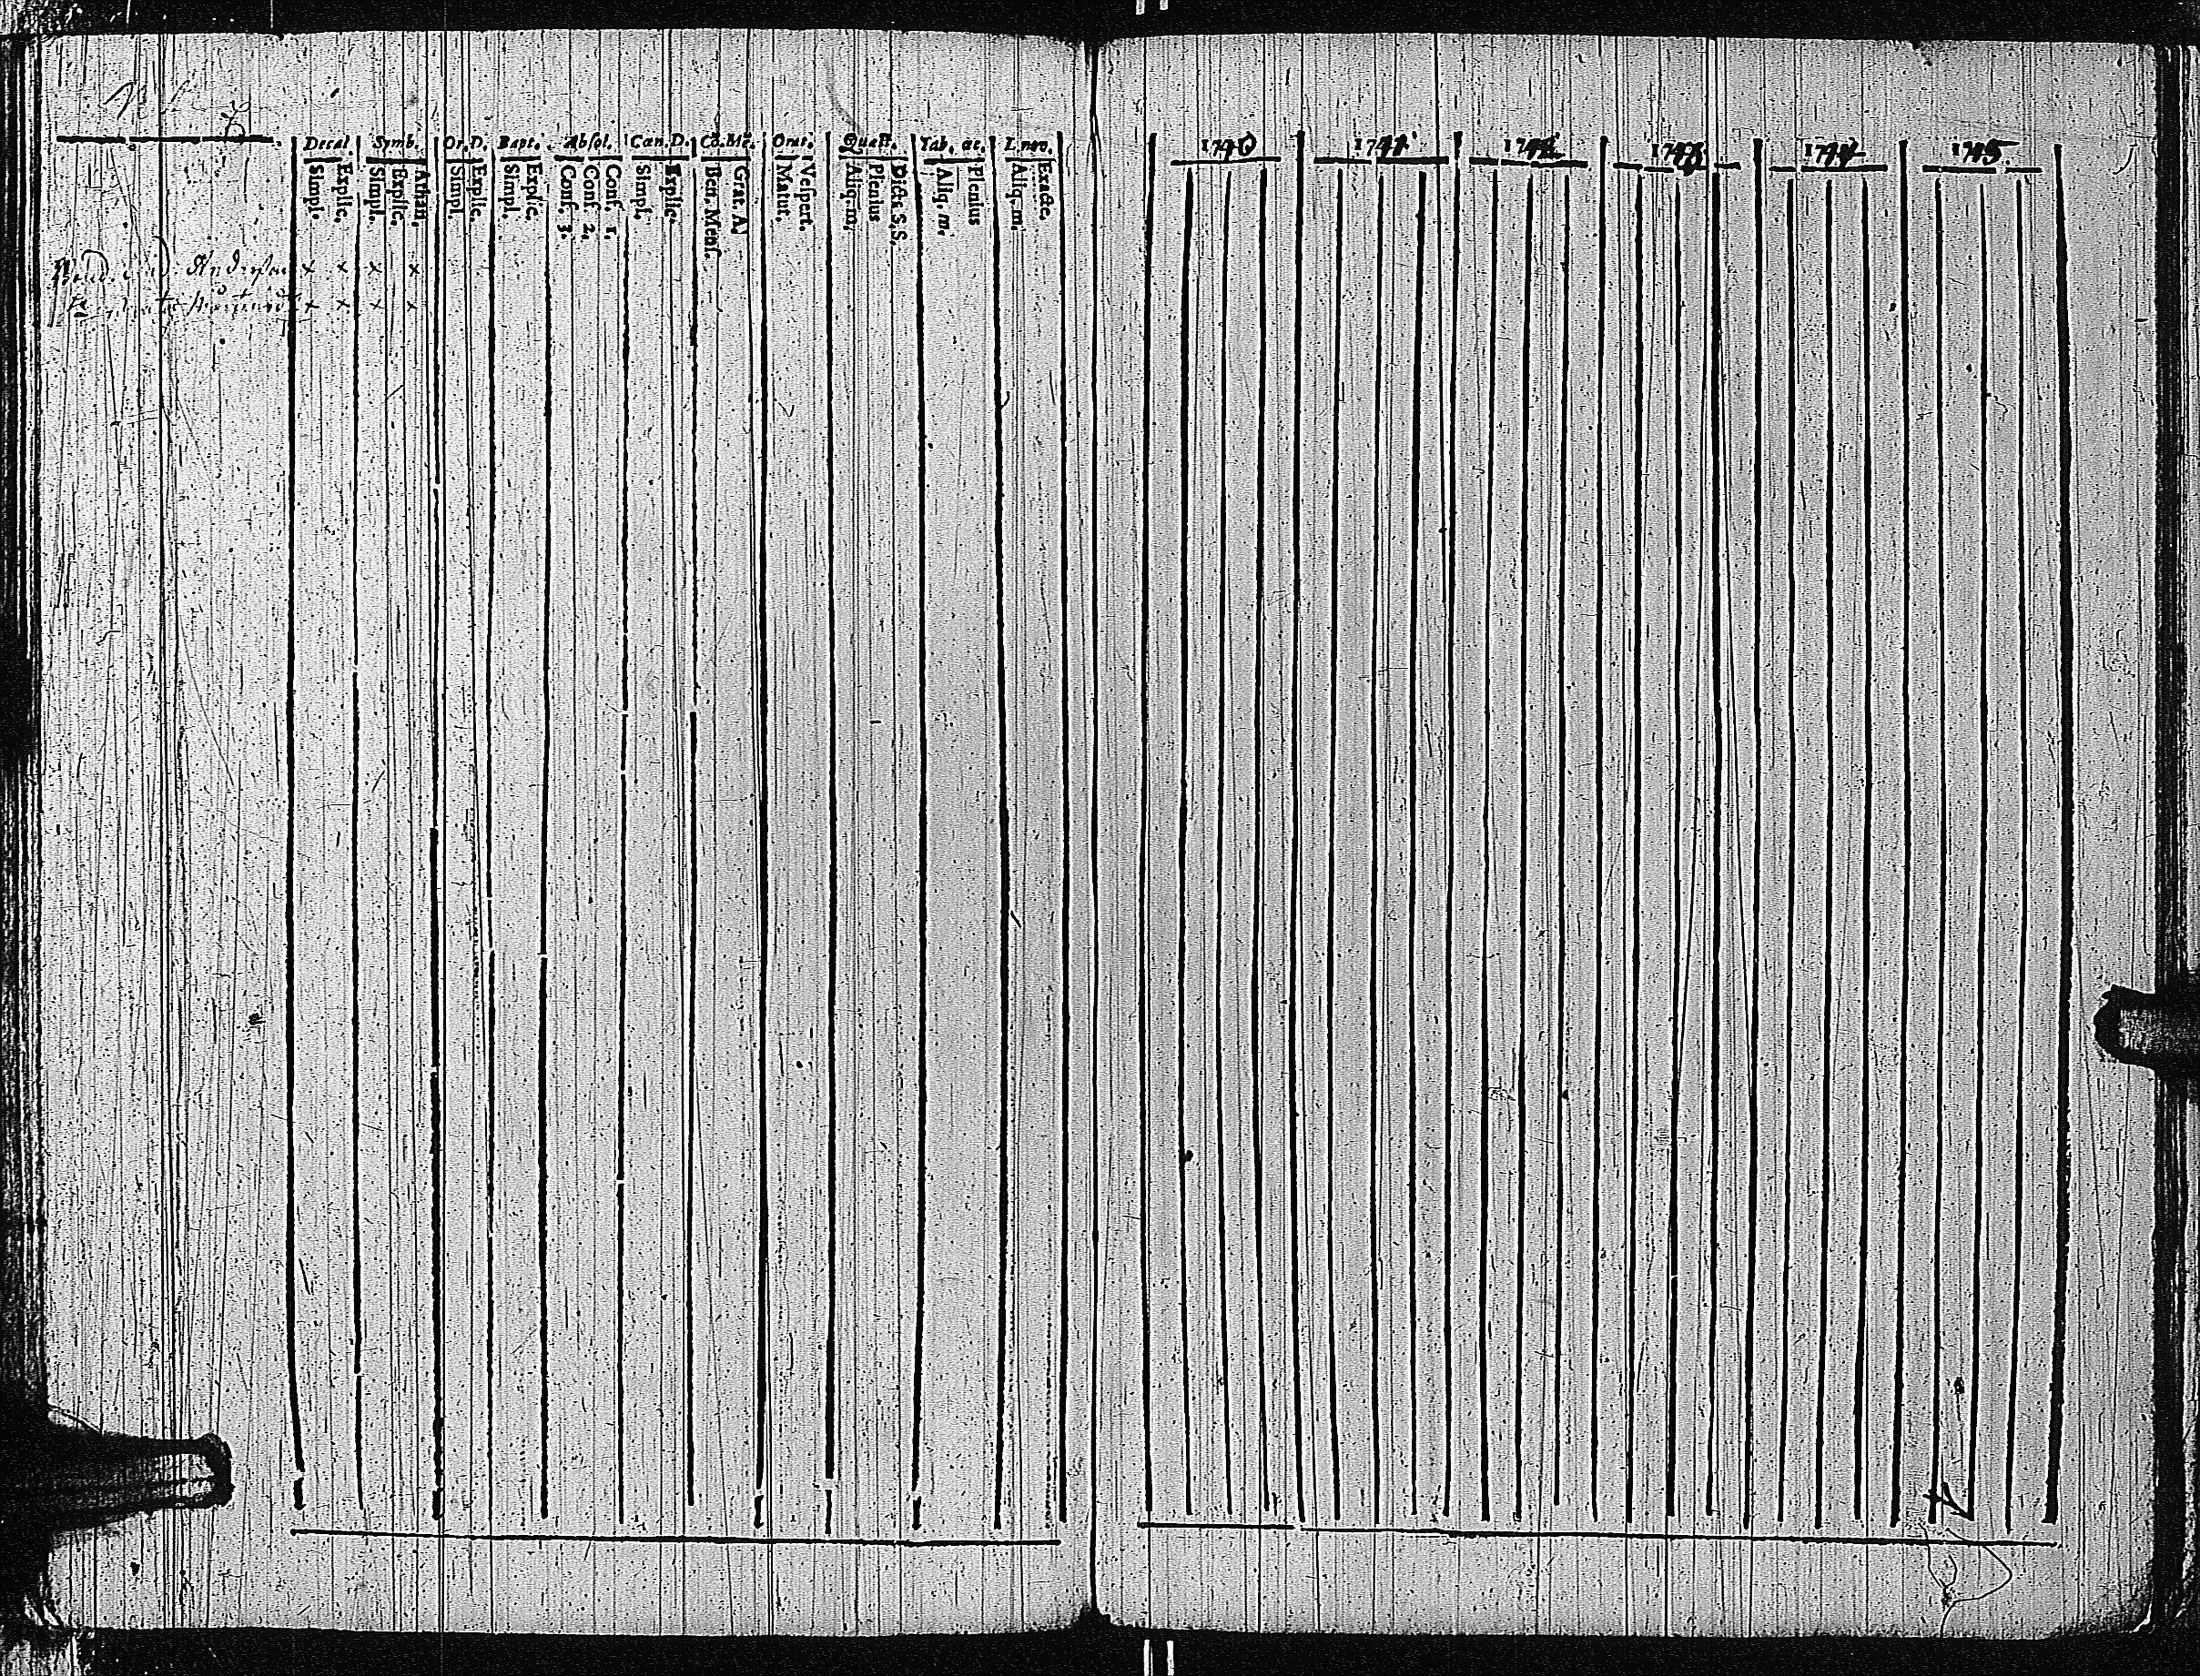 Decal Symb. Or. D. Bapt. Absol. Can. D. Co. Mē. Orat. Quæst. Tab. æc. L. nov.
Simpl. Explic. Simpl. Explic. Athan. Simpl. Explic. Simpl. Explic. Conf. 3. Conf. 2. Conf. 1. Simpl. Explic. Ben. Mens. Grat. A. Matut. Vespert. Aliq. m. Plenius Dicta S,S, Aliq. m. Plenius Aliq. m. Exacte.
Anderss × × × ×
× × × ×
1740 1741 1742 1743 1744 1745